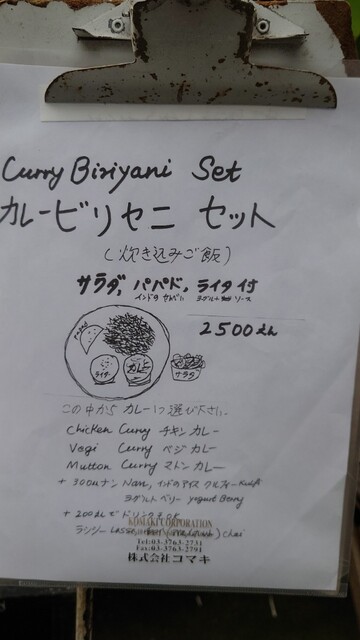 Curry Biriyani Set
カレービリヤニ セット
(炊き込みご飯)
サラダ, パパド, ライタ付
インドの ヨーグルト ソース
2500えん
ライタ カレー サラダ
この中から カレー1つ選び下さい
Chicken Curry チキン カレー
Vegi Curry ベジ カレー
Mutton Curry マトン カレー
+ 300円 ナン Nan, インドのアイス クルフィー Kulfi
ヨーグルト ベリー yogurt Berry
+ 200円で ドリンクもOK
ラッシー Lassi chai
KOMAKI CORPORATION
Tel:03-3763-2731
Fax:03-3763-2791
株式会社コマキ